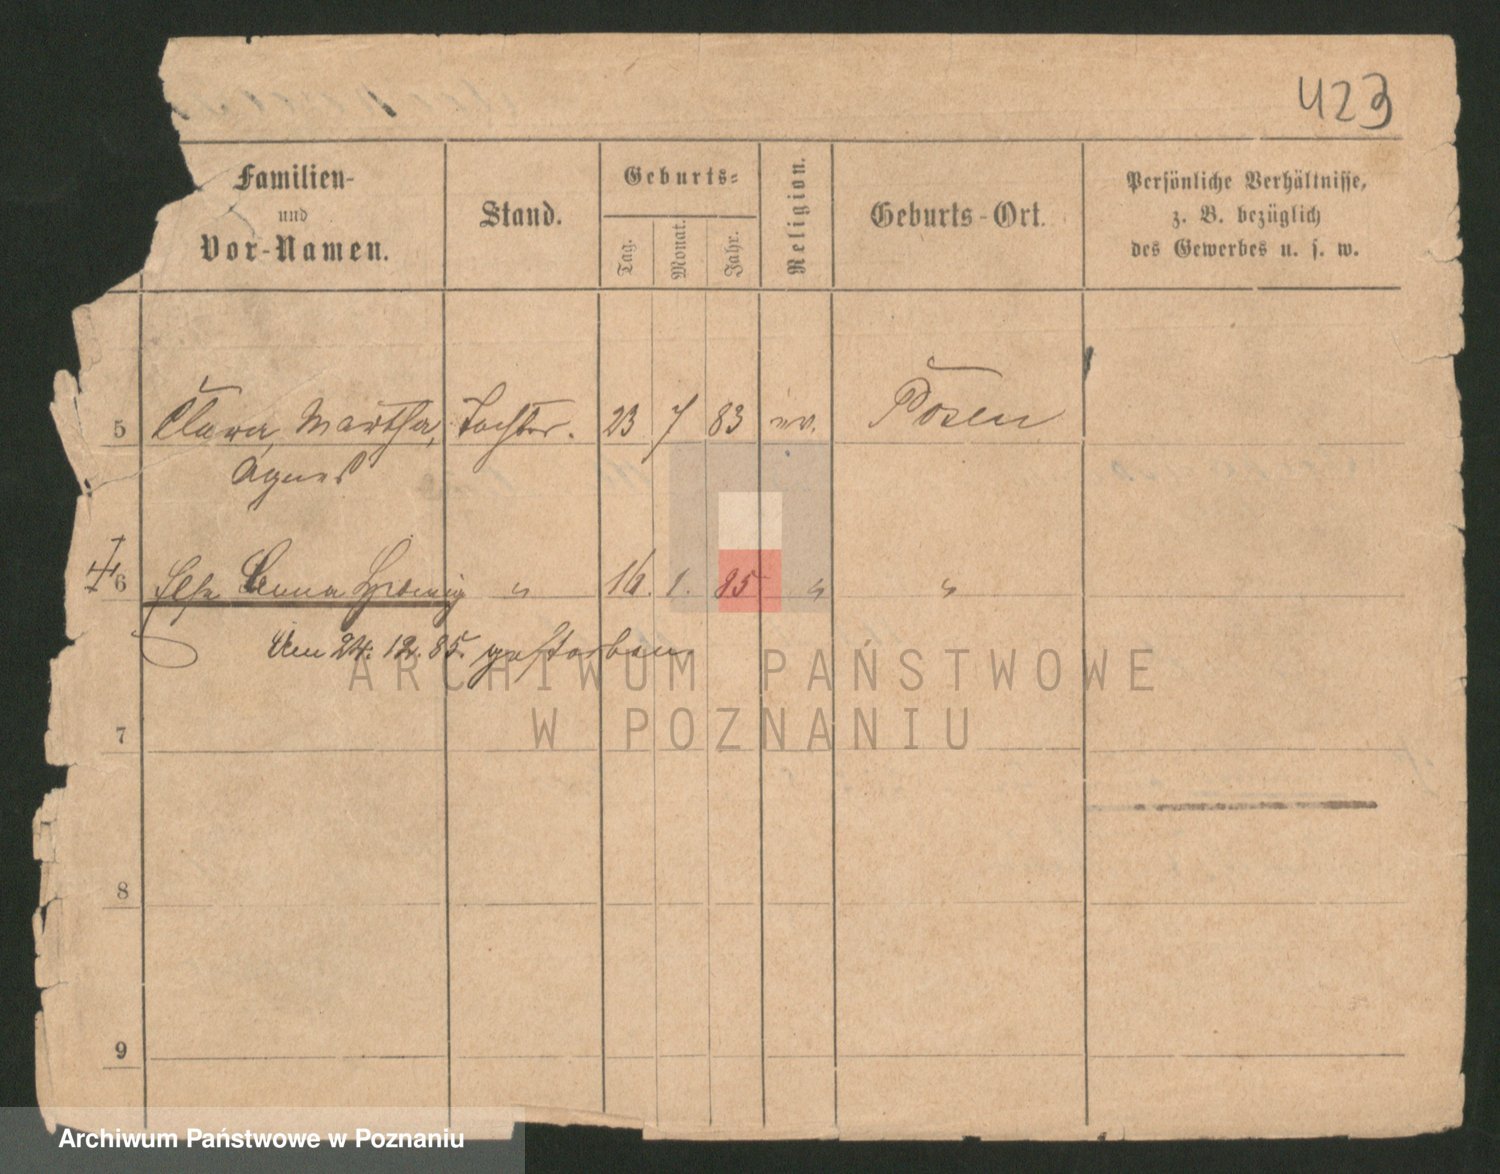 423
Familien-
und
Vor-Namen.
Stand.
Geburts-
Tag.
Monat.
Jahr.
Religion.
Geburts-Ort.
Persönliche Verhältnisse,
z. B. bezüglich
des Gewerbes u. s. w.
5 Clara, Martha, Tochter. 23 7 83 ev. Posen
Agnes
6 Else Anna Hedwig " 16. 1. 85 " "
Am 24. 12. 85. gestorben.
7
8
9
ARCHIWUM PAŃSTWOWE
W POZNANIU
Archiwum Państwowe w Poznaniu